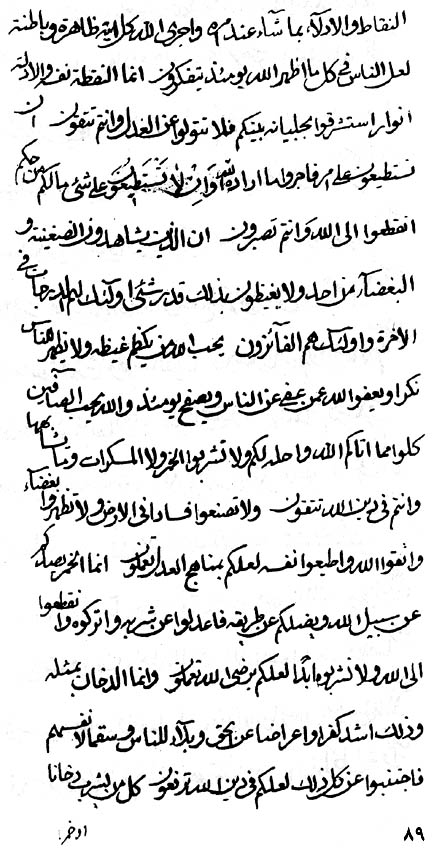 النقاط والادلآء بما شآء عند مره واجرى الله كل امة ظاهرة وباطنة
لعل الناس فى كل ما اظهر الله يومئذ يتفكرون انما النقطة نفسه والادلة
انوار استشرقوا بينكم فلا تتولوا عن العدل وانتم تتقون ان
تستطيعون على امر فاجروا ما اراد الله وان لا تستطيعون على شئ مالكم من حكم
انقطعوا الى الله وانتم تصبرون ان الذين يشاهدون الضغينة و
البغضآء من احد ولا يغيظون بذلك قدر شئ اولئك لهم الدرجات فى
الآخرة واولئك هم الفآئزون يحب الله من يكظم غيظه ولا يظهر للناس
نكرا ويعفوا الله عمن يعفى عن الناس ويصفح يومئذ والله يحب العافين
كلوا مما اتاكم الله واحله لكم ولا تشربوا الخمر ولا المسكرات وما يشابهها
وانتم فى دين الله تتقون ولا تصنعوا فسادا فى الارض ولا تظهروا بغضآء
واتقوا الله واطيعوا نفسه لعلكم بمناهج العدل تعملون انما الخمر يصدكم
عن سبيل الله ويضلكم عن طريقه فاعدلوا عن شربه واتركوه وانقطعوا
الى الله ولا تشربوه ابدا لعلكم برضى الله تعملون وانما الدخان بمثله
وذلك اشد كفرا واعراضا عن الحق وبلآء للناس وسقما لانفسهم
فاجتنبوا عن كل ذلك لعلكم فى دين الله ترفعون كل من يشرب دخانا
٨٩